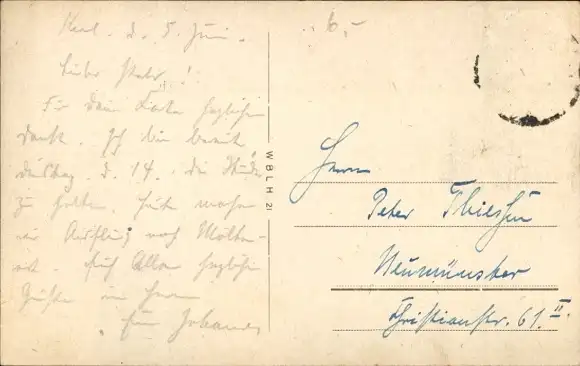 Kiel. d. 5. Juni.
Lieber Peter!
Für deine Karte herzlichen
Dank. Ich bin bereit
Dienstag d. 14. die
zu halten. Heute machen
wir Ausflug nach Molfsee
Euch Allen herzliche
Grüße im Herrn
Johannes
6,-
W B L H 21
Herrn
Peter Thiessen
Neumünster
Christianstr. 61 II.